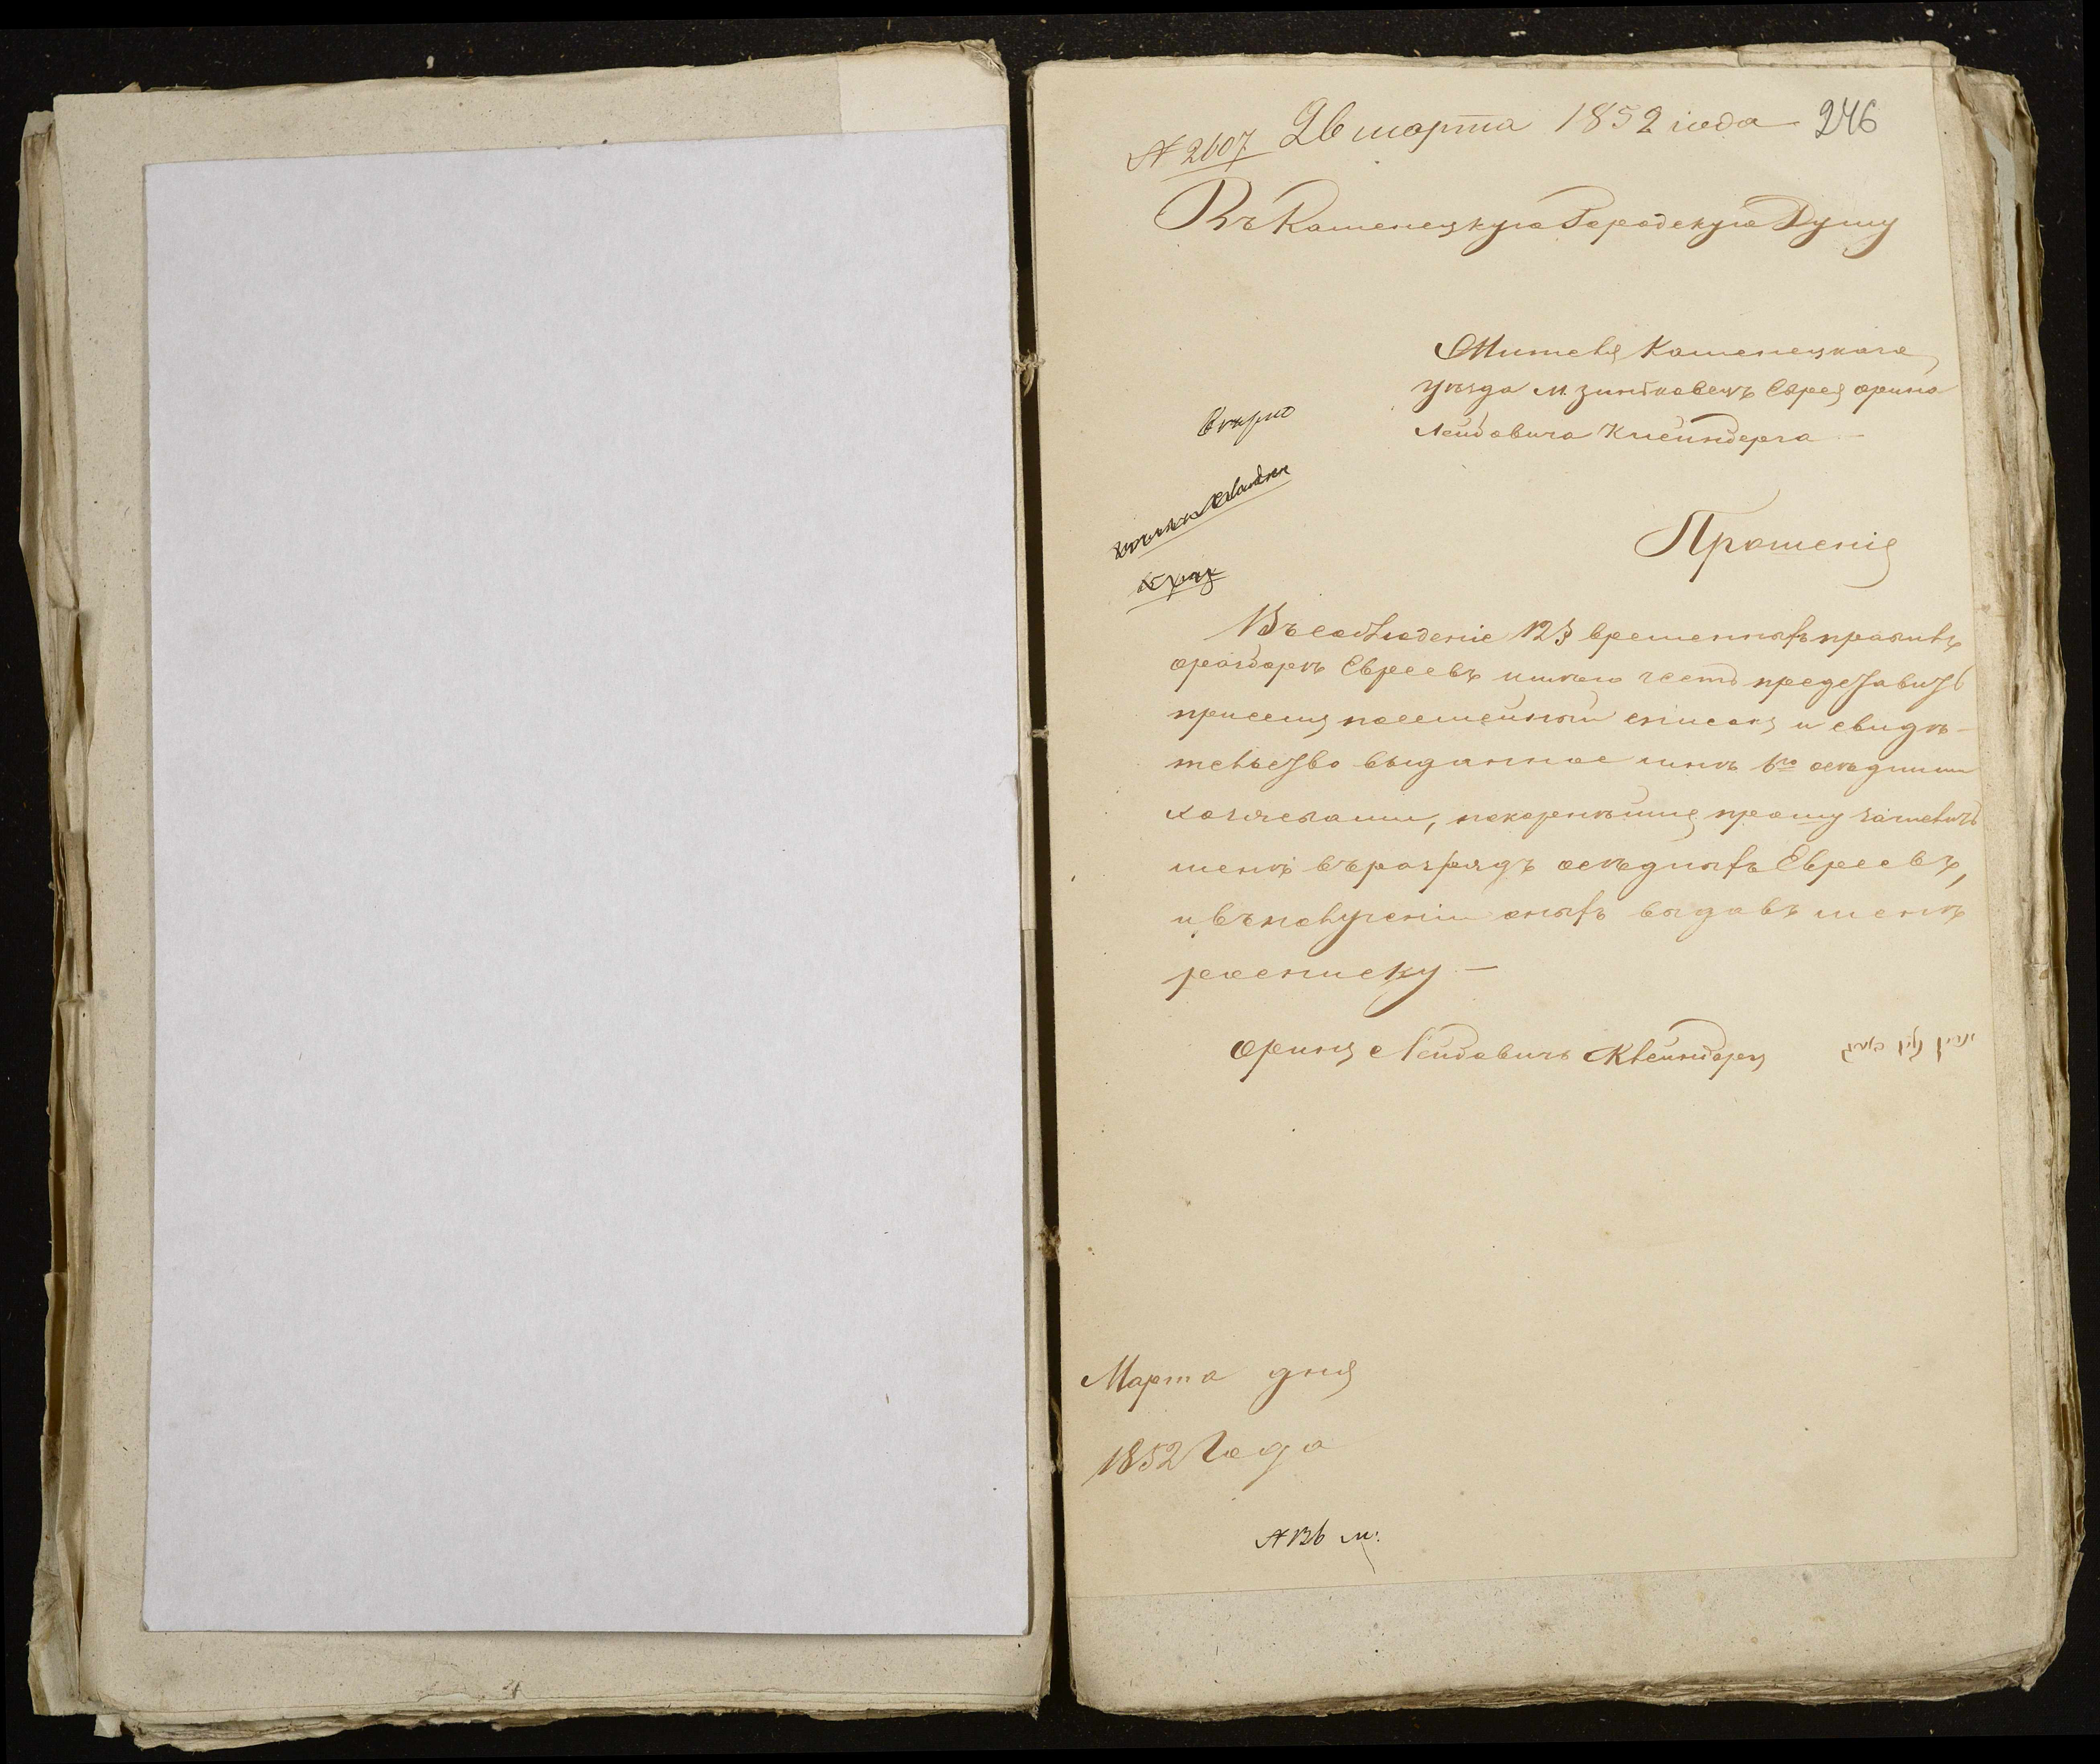 № 2607 26 марта 1852 года 246
Въ Каменецкую Городскую Думу
Жителя Каменецкаго
уѣзда м. Зиньковецъ Еврея Орина
Лейбовича Клейнберга —
Прошеніе
Въ соблюденіе 12 § временныхъ правилъ
о разборѣ Евреевъ имѣю честь представить
при семъ посемейный списокъ и свидѣ-
тельство выданное мнѣ 6ю осѣдлыми
хозяевами, покорнѣйше прошу зачислить
меня въ разрядъ осѣдлыхъ Евреевъ,
и въ полученіи оныхъ выдавъ мнѣ
росписку —
Оринъ Лейбовичъ Клейнбергъ
Марта дня
1852 Года